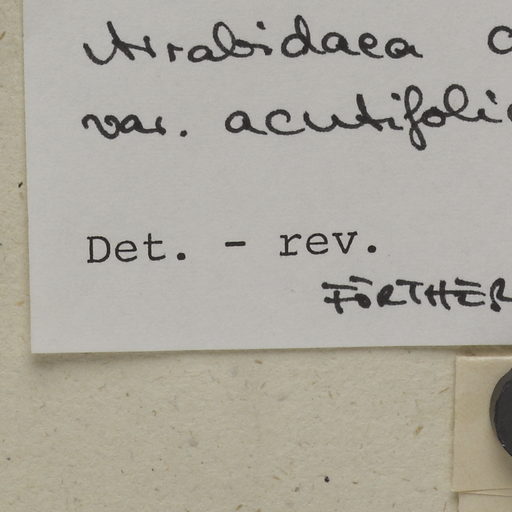 Arrabidaea c
var. acutifolia
Det. - rev.
FÖRTHER